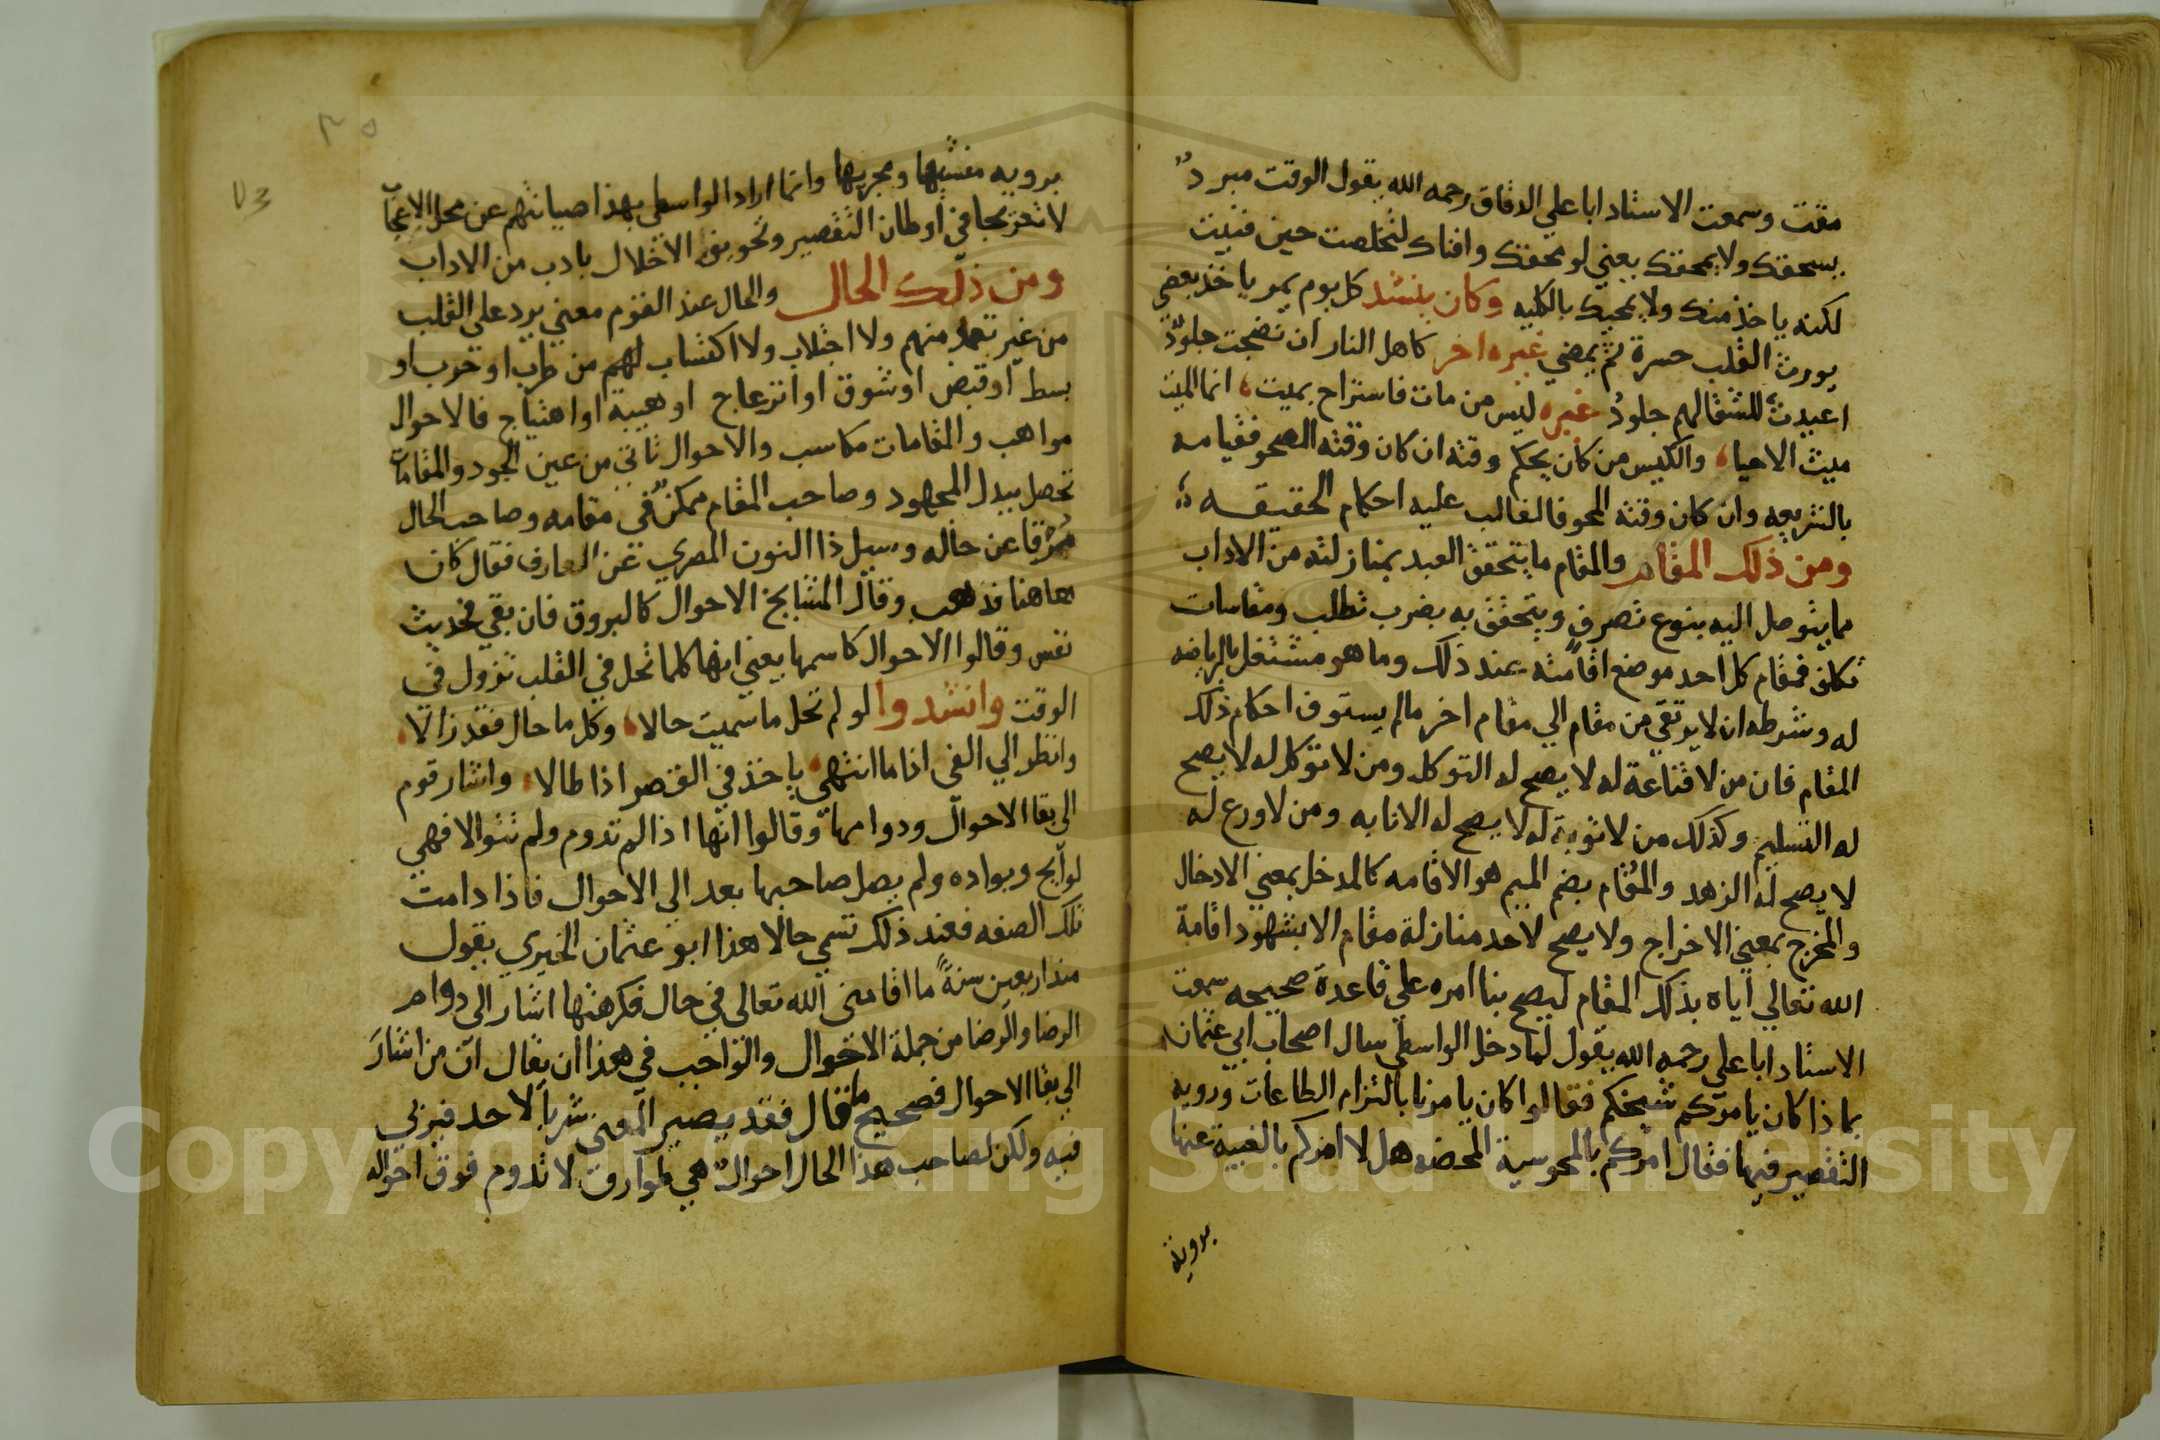 مقت وسمعت الاستاد ابا علي الدقاق رحمه الله يقول الوقت مبردٌ
يسحقك ولا يمحقك يعني لو محقك وافناك لتخلصت حين فنيت
لكنه ياخذ منك ولا يمحيك بالكليه وكان ينشد كل يوم يمر ياخذ بعضي
يورث القلب حسرة ثم يمضي غيره اخر كاهل النار ان نضجت جلودٌ
اعيدت للشقا لهم جلودٌ غيره ليس من مات فاستراح بميت، انما الميت
ميت الاحياء والكيس من كان بحكم وقته ان كان وقته الصحو فقيامه
بالشريعه وان كان وقته المحو فالغالب عليه احكام الحقيقه
ومن ذلك المقام والمقام ما يتحقق العبد بمنازلته من الاداب
مما يتوصل اليه بنوع تصرف ويتحقق به بضرب تطلب ومقاسات
تكلف فمقام كل احد موضع اقامته عند ذلك وما هو مشتغل بالرياضه
له وشرطه ان لا يرتقي من مقام الي مقام اخر ما لم يستوف احكام ذلك
المقام فان من لا قناعة له لا يصح له التوكل ومن لا توكل له لا يصح
له التسليم وكذلك من لا توبة له لا يصح له الانابه ومن لا ورع له
لا يصح له الزهد والمُقام بضم الميم هو الاقامه كالمدخل بمعني الادخال
والمخرج بمعني الاخراج ولا يصح لاحد منازلة مقام الا بشهود اقامة
الله تعالي اياه بذلك المقام ليصح بنا امره علي قاعدة صحيحه سمعت
الاستاد ابا علي رحمه الله يقول لما دخل الواسطي سال اصحاب ابي عثمان
بما ذا كان يامركم شيخكم فقالوا كان يامرنا بالتزام الطاعات ورويه
التقصير فيها فقال امركم بالمجوسية المحضه هل لا امركم بالغيبة عنها
برويته
٣٥
٧٣
برويه منشيها ومجريها وانما اراد الواسطي بهذا صيانتهم عن محل الاعجاب
لا تعريجا في اوطان التقصير وتجويز الاخلال بادب من الاداب
ومن ذلك الحال والحال عند القوم معني يرد علي القلب
من غير تعمد منهم ولا اجتلاب ولا اكتساب لهم من طرب او حزب او
بسط او قبض او شوق او انزعاج او هيبة او اهتياج فالاحوال
مواهب والمقامات مكاسب والاحوال تاتي من عين الجود والمقامات
تحصل ببدل المجهود وصاحب المقام ممكنٌ في مقامه وصاحب الحال
مُترقا عن حاله وسيل ذا النون المصري عن العارف فقال كان
هاهنا فذهب وقال المشايخ الاحوال كالبروق فان بقي فحديث
نفس وقالوا الاحوال كاسمها يعني انها كلما تحل في القلب تزول في
الوقت وانشدوا لو لم تحل ما سميت حالا، وكل ما حال فقد زالا،
وانظر الي الفي اذا ما انتهي، ياخذ في النقص اذا طالا، واشار قوم
الي بقا الاحوال ودوامها وقالوا انها اذا لم تدوم ولم تتوالا فهي
لوايح وبواده ولم يصل صاحبها بعد الي الاحوال فاذا دامت
تلك الصفه فعند ذلك تسمي حالا هذا ابو عثمان الحيري يقول
منذ اربعين سنةً ما اقامني الله تعالى في حال فكرهتها اشار الى دوام
الرضا والرضا من جملة الاحوال والواجب في هذا ان يقال ان من اشار
الي بقا الاحوال فصحيح ما قال فقد يصير المعنى شربا لاحد فيربي
فيه ولكن لصاحب هذا الحال احوالٌ هي طوارق لا تدوم فوق احواله
Copyright © King Saud University